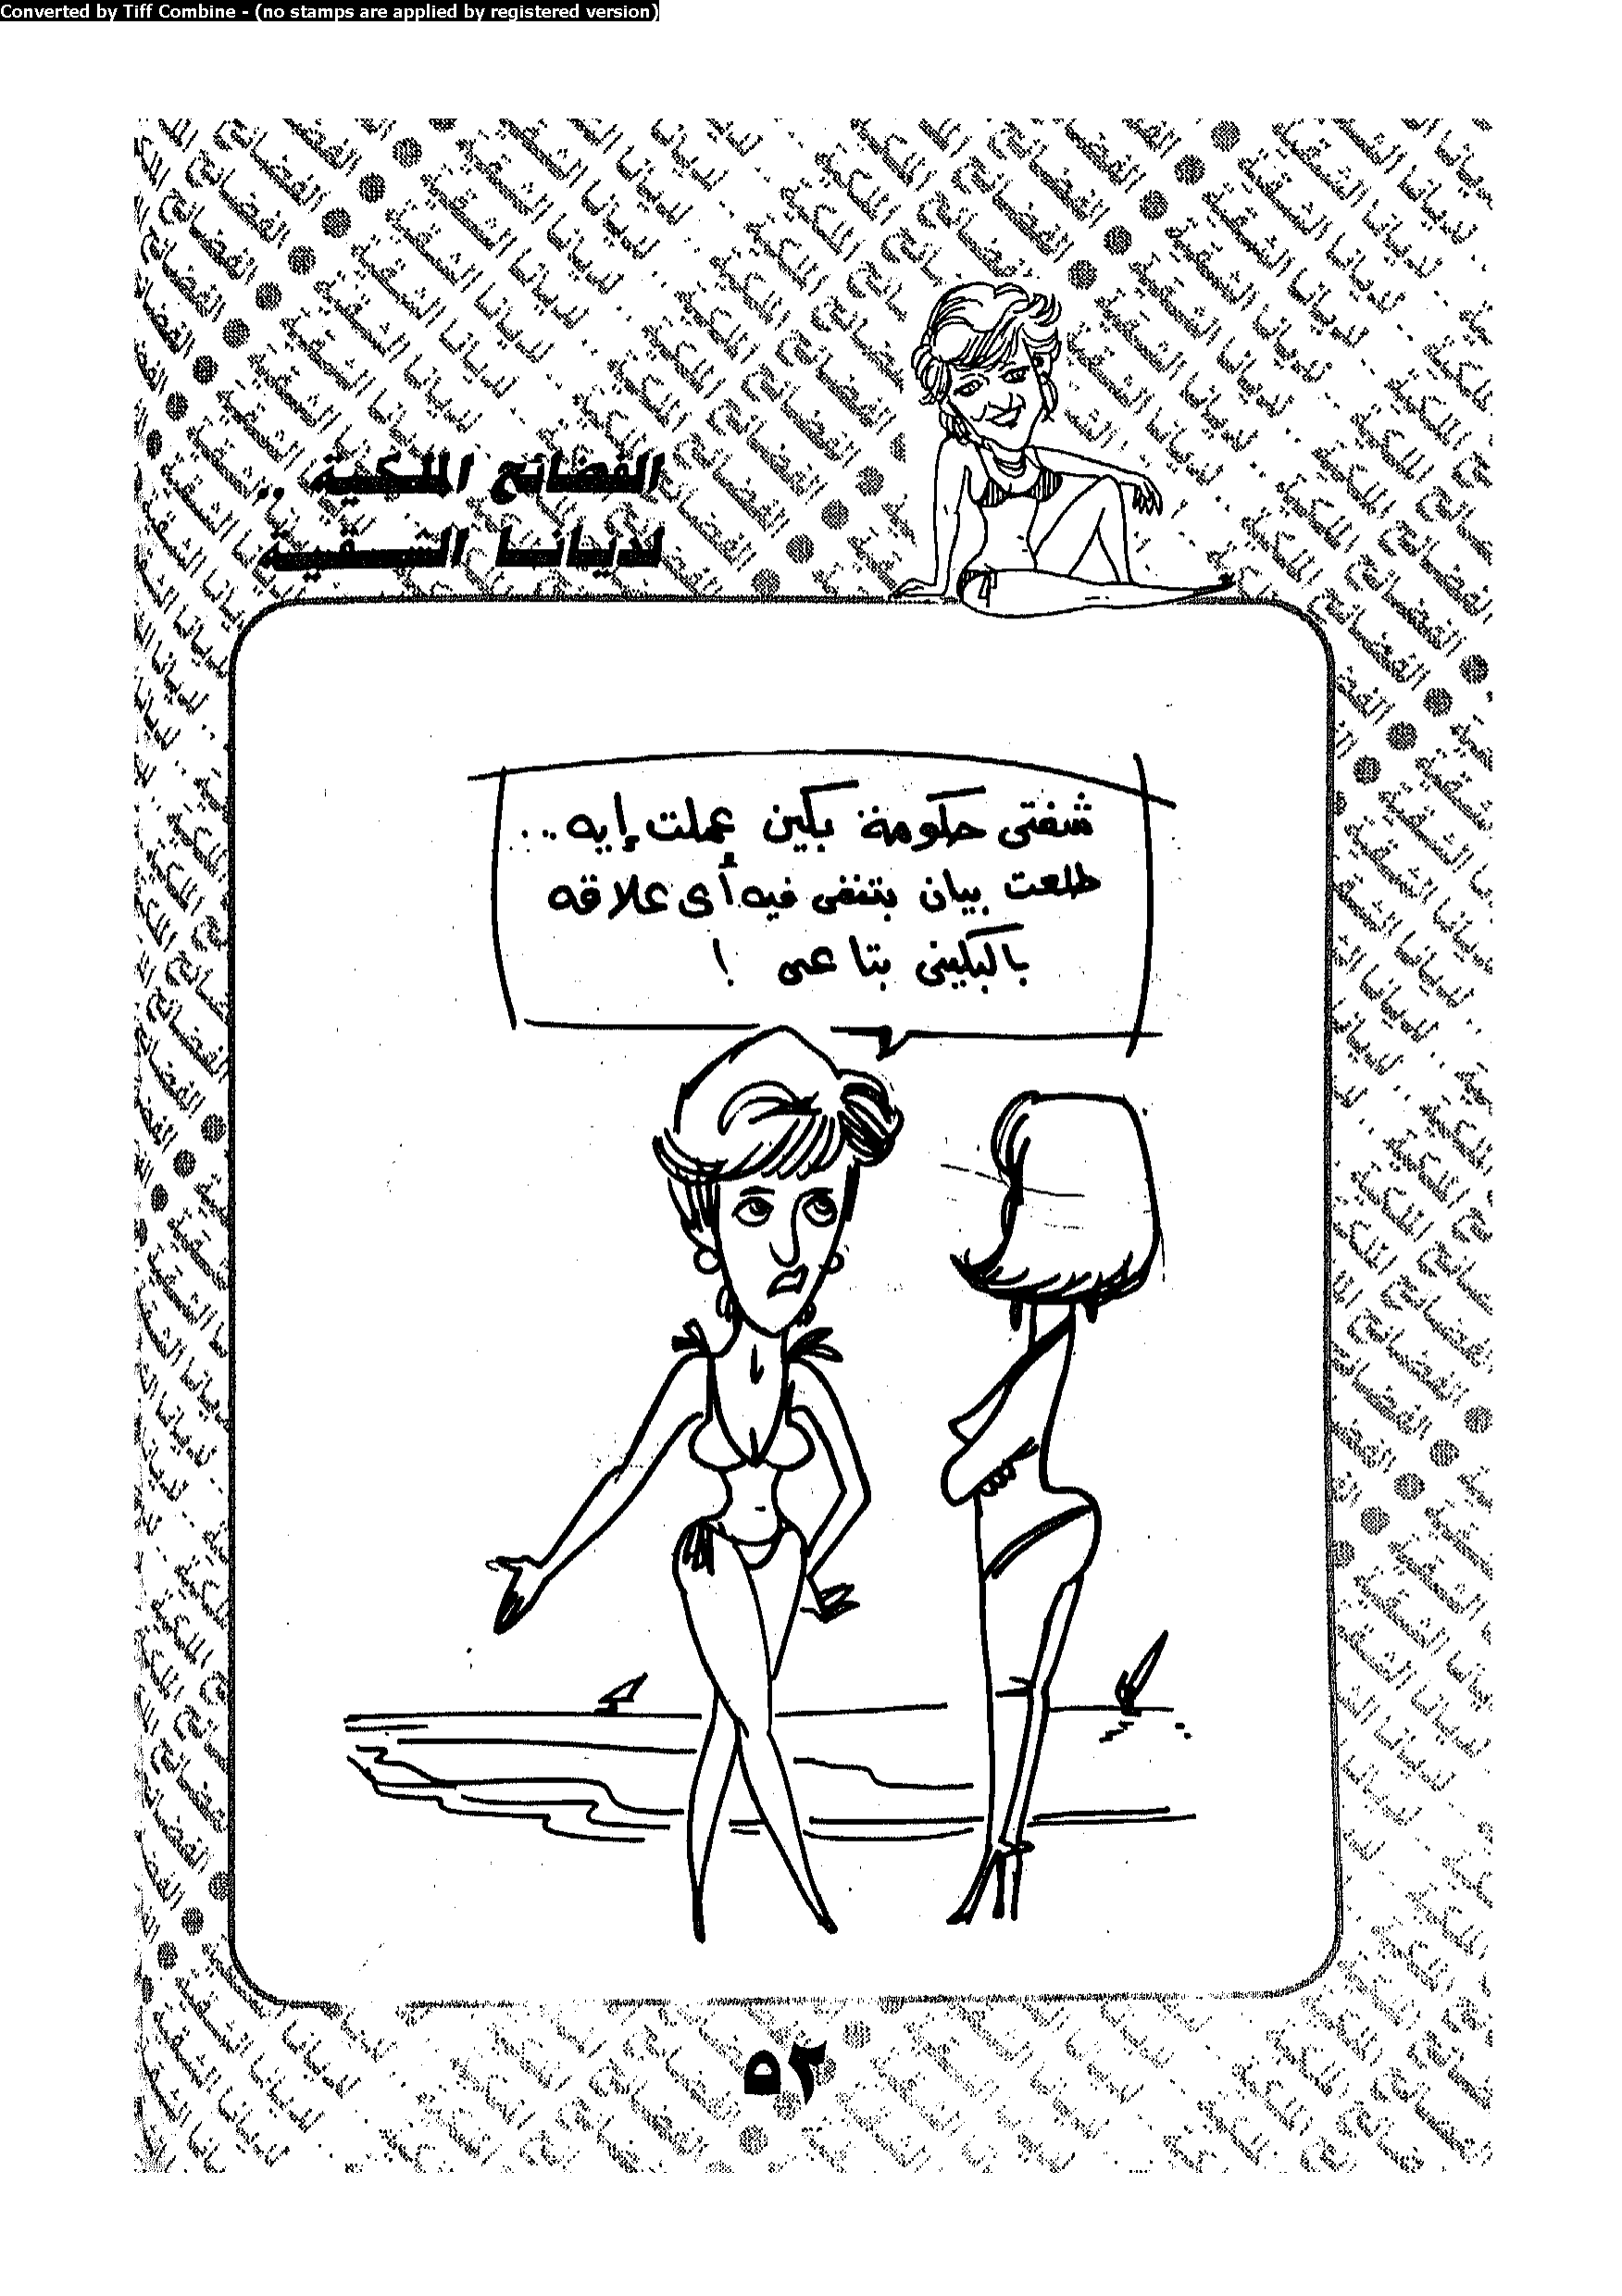 Converted by Tiff Combine - (no stamps are applied by registered version)
الفضائح الملكية ..
لديانا الشقية
شفتى حكومة بكين عملت إيه ..
طلعت بيان بتنفى فيه أى علاقه
بالبكينى بتاعى !
٥٢